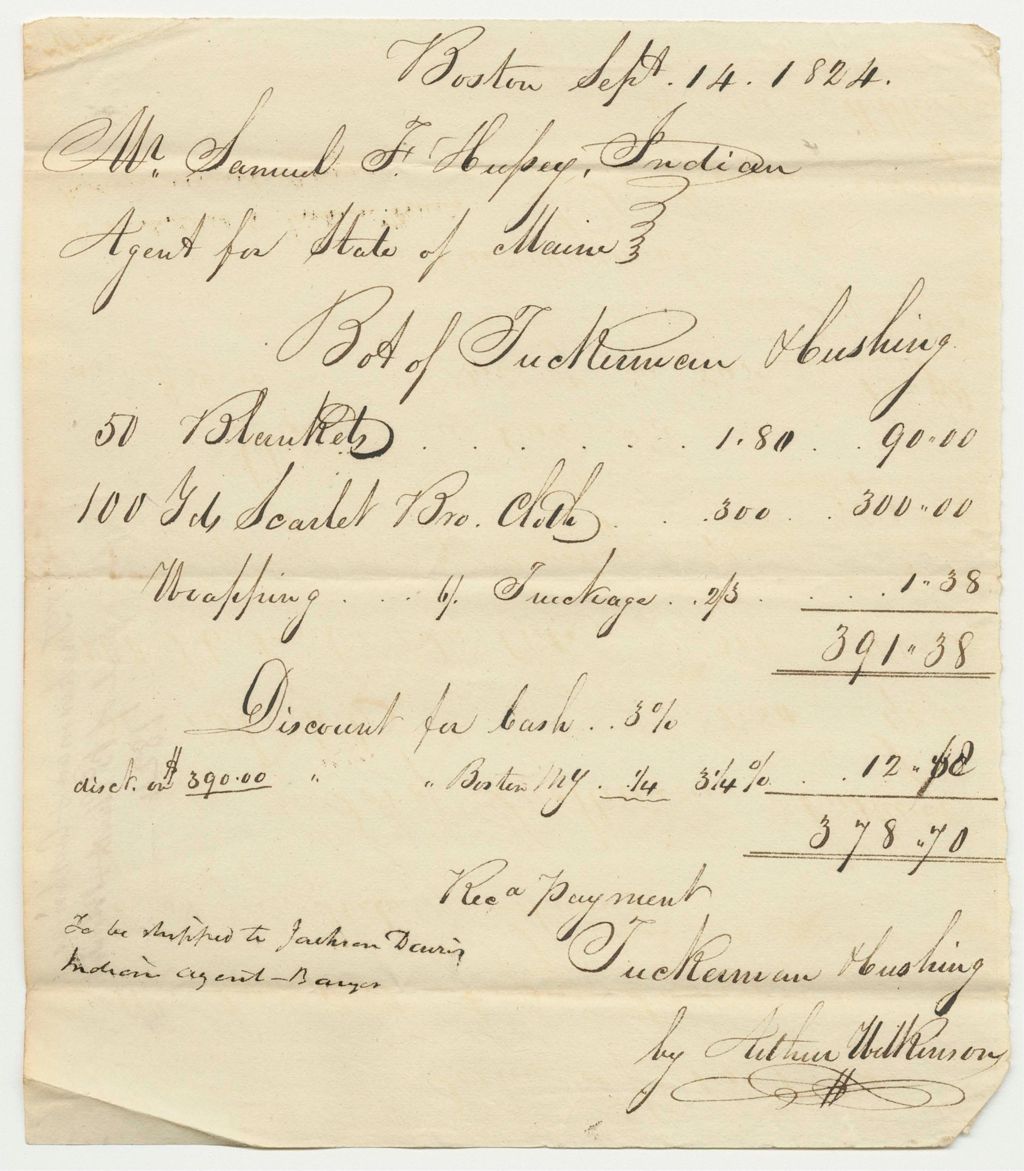 Boston Sept. 14. 1824.
Mr. Samuel F. Hussey, Indian
Agent for State of Maine
Bot of Tuckerman & Cushing
50 Blankets . . . . . . 1.80 . . 90"00
100 Yds Scarlet Bro. Cloth . . . 300 . . 300"00
Wrapping . . . 6/. Truckage . . 2/3 . . . . 1"38
391"38
Discount for Cash . . 3%
disct. on $390.00 " " Boston My . 1/4 3 1/4% . . . 12"
378"70
Recd Payment
To be shipped to Jackson Davis
Indian agent - Bangor
Tuckerman & Cushing
by Arthur Wilkinson